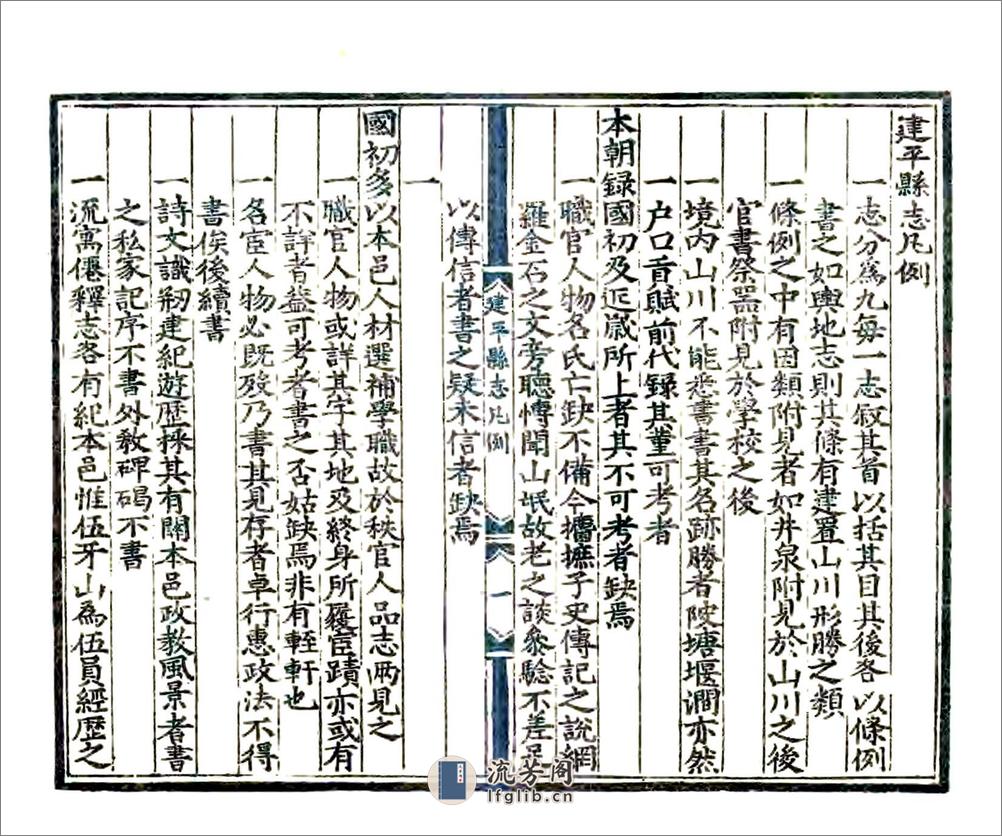 建平縣志凡例
一志分爲九每一志叙其首以括其目其後各以條例
書之如輿地志則其條有建置山川形勝之類
一條例之中有因類附見者如井泉附見於山川之後
官書祭器附見於學校之後
一境內山川不能悉書書其名跡勝者陂塘堰澗亦然
一户口貢賦前代録其董可考者
本朝録國初及近嵗所上者其不可考者缺焉
一職官人物名氏亡缺不備今攟摭子史傳記之說網
羅金石之文旁聽愽聞山氓故老之談叅驗不差足
以傳信者書之疑未信者缺焉
一
國初多以本邑人材選補學職故於秩官人品志兩見之
一職官人物或詳其字其地及終身所履宦蹟亦或有
不詳者葢可考者書之否姑缺焉非有輊軒也
一名宦人物必既殁乃書其見存者卓行惠政法不得
書俟後續書
一詩文識刱建紀遊歷採其有關本邑政教風景者書
之私家記序不書外教碑碣不書
一流寓僊釋志各有紀本邑惟伍牙山為伍員經歷之
建平縣志凡例
一
流芳阁
lfglib.cn